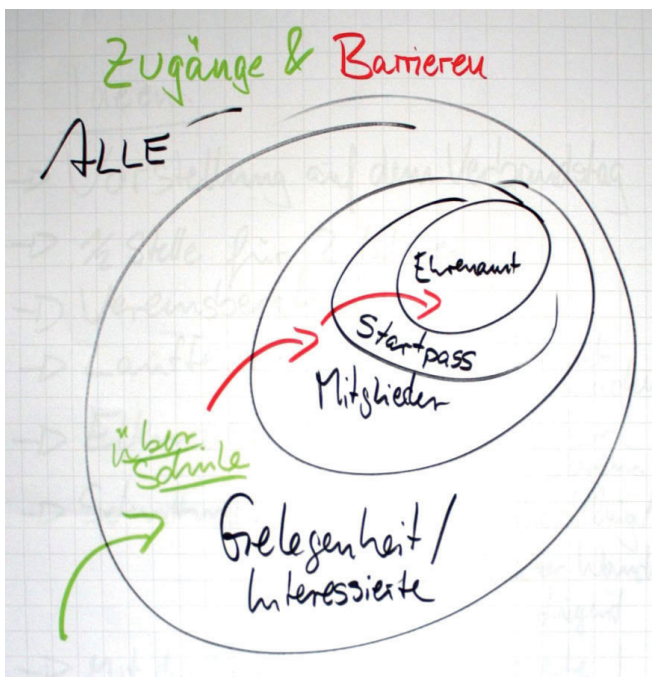 Zugänge & Barrieren
ALLE
Ehrenamt
Startpass
Mitglieder
über
Schule
Gelegenheit/
Interessierte